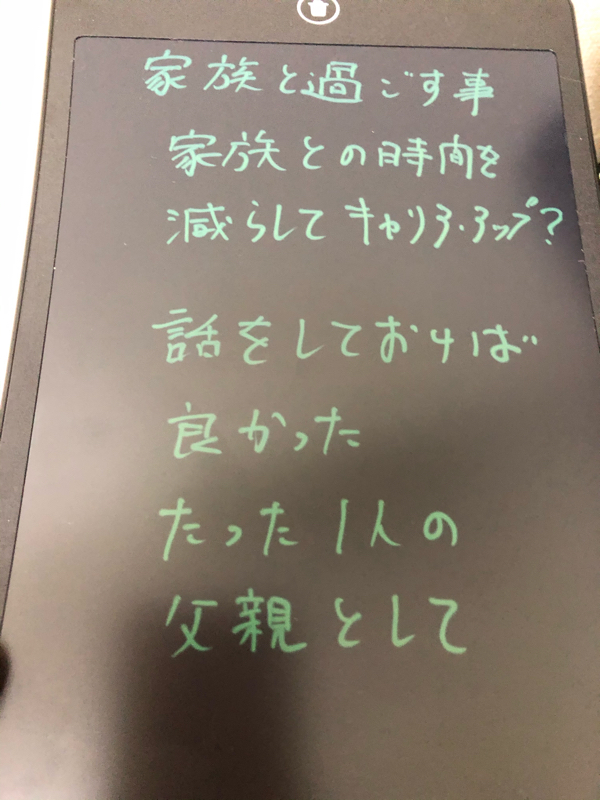 家族と過ごす事
家族との時間を
減らしてキャリア・アップ?
話をしておけば
良かった
たった1人の
父親として